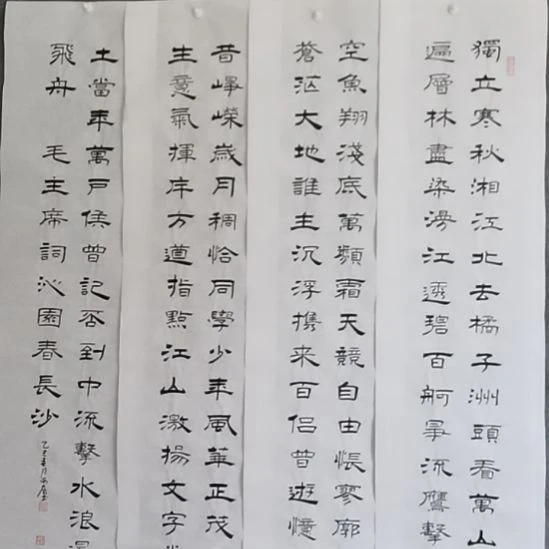 獨立寒秋湘江北去橘子洲頭看萬山
遍層林盡染漫江透碧百舸爭流鷹擊
空魚翔淺底萬類霜天競自由悵寥廓
蒼茫大地誰主沉浮携来百侣曾遊憶
昔崢嶸歲月稠恰同學少年風華正茂
生意氣揮斥方遒指點江山激揚文字
土當年萬戶侯曾記否到中流擊水浪
飛舟 毛主席詞沁園春長沙
乙巳春月